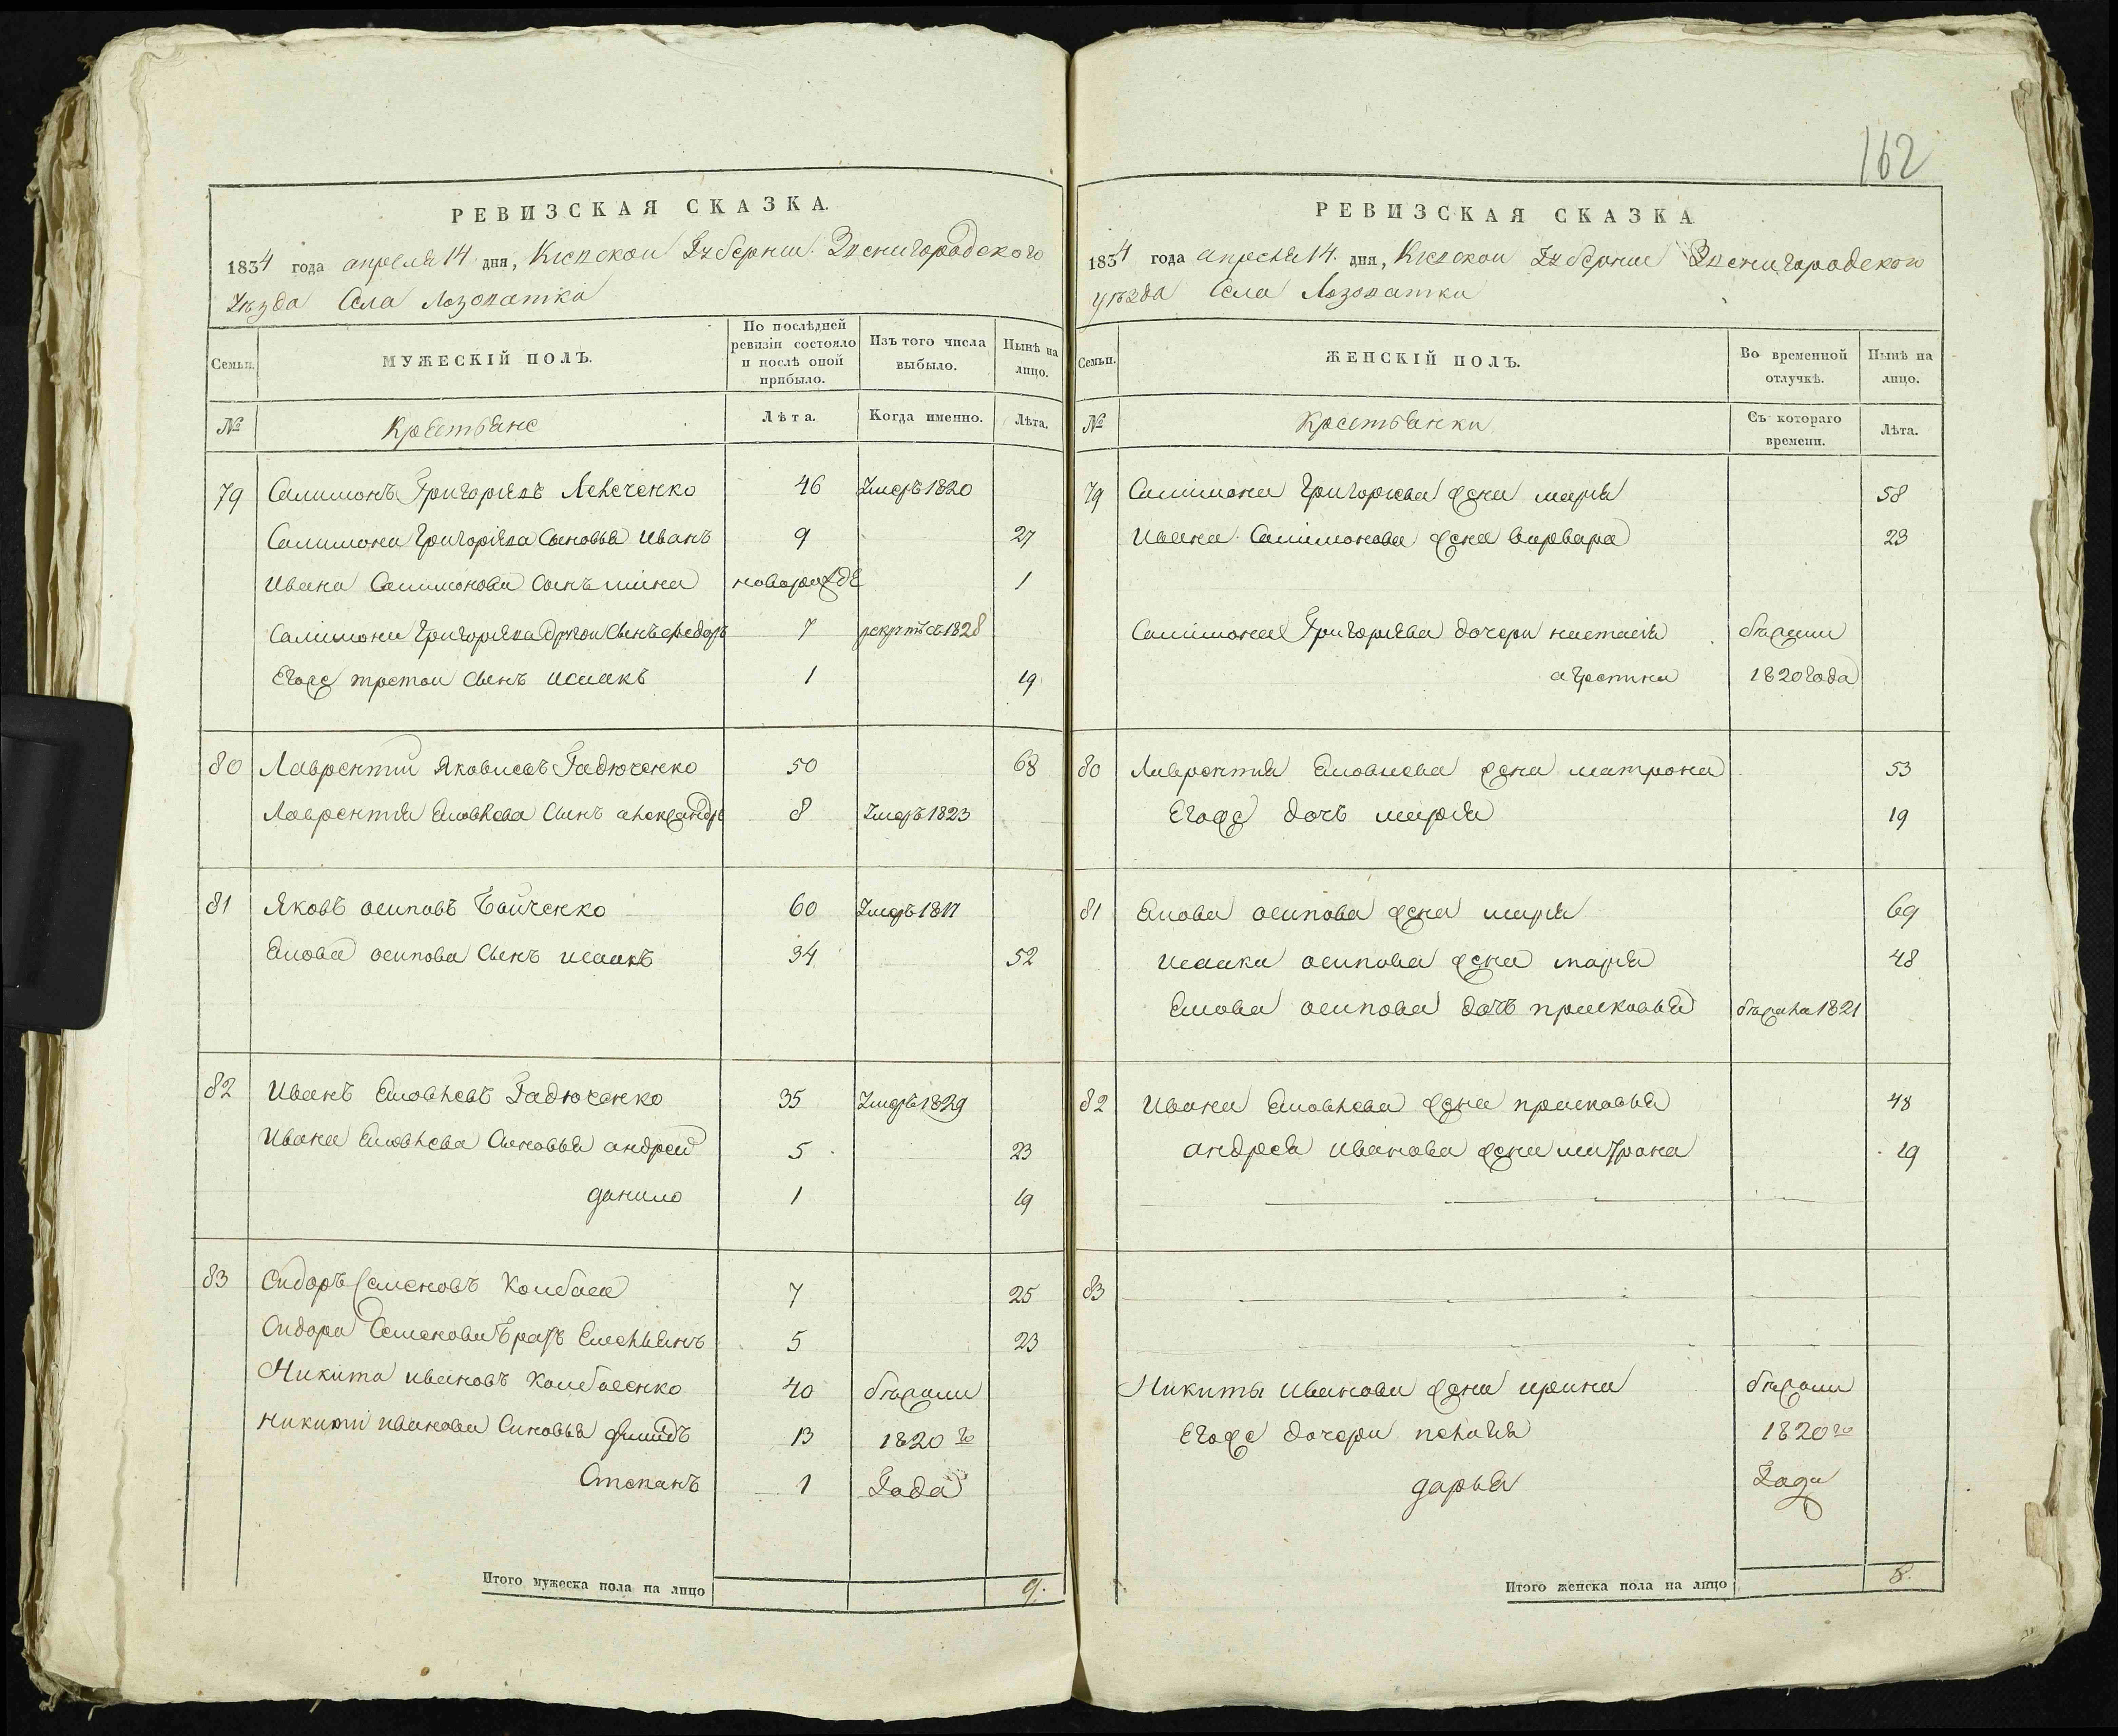 162
РЕВИЗСКАЯ СКАЗКА.
1834 года апреля 14 дня, Киевской Губернии Звенигородского
Уезда Села Лозоватки
Семьи.
МУЖЕСКІЙ ПОЛЪ.
По послѣдней ревизіи состояло и послѣ оной прибыло.
Изъ того числа выбыло.
Нынѣ на лицо.
№ Крестьяне Лѣта. Когда именно. Лѣта.
79 Салимонъ Григориевъ Левченко 46 Умеръ 1820
Салимона Григориева Сыновья Иванъ 9 27
Ивана Салимонова Сынъ мина новорожде 1
Салимона Григориева другои Сынъ федоръ 7 рекрутъ съ 1828
Егоже третои Сынъ исаакъ 1 19
80 Лаврентии Яковлевъ Гадюченко 50 68
Лаврентия Яковлева Сынъ александръ 8 Умеръ 1823
81 Яковъ осиповъ Бойченко 60 Умеръ 1817
Якова осипова Сынъ исаакъ 34 52
82 Иванъ Яковлевъ Гадюченко 35 Умеръ 1829
Ивана Яковлева Сыновья андреи 5 23
данило 1 19
83 Сидоръ Семеновъ 7 25
Сидора Семенова братъ Емельянъ 5 23
Никита ивановъ 40 бежали
никити иванова Синовья 13 1820 го
Степанъ 1 Года
Итого мужеска пола на лицо 9.
РЕВИЗСКАЯ СКАЗКА
1834 года апреля 14 дня, Киевской Губернии Звенигородского
уезда Села Лозоватки
Семьи.
ЖЕНСКІЙ ПОЛЪ.
Во временной отлучкѣ.
Нынѣ на лицо.
№ Крестьянки Съ котораго времени. Лѣта.
79 Салимона Григориева жена марья 58
Ивана Салимонова жена варвара 23
Салимона Григориева дочери настасия бежали
агрепина 1820 года
80 Лаврентия Яковлева жена матрона 53
Егоже дочъ мария 19
81 Якова осипова жена мария 69
исаака осипова жена мария 48
Якова осипова дочъ прасковья бежала 1821
82 Ивана Яковлева жена прасковья 48
андрея иванова жена матрона 19
83
Никиты иванова жена ирина бежали
Егоже дочери пелагия 1820 го
дарья Года
Итого женска пола на лицо 8.